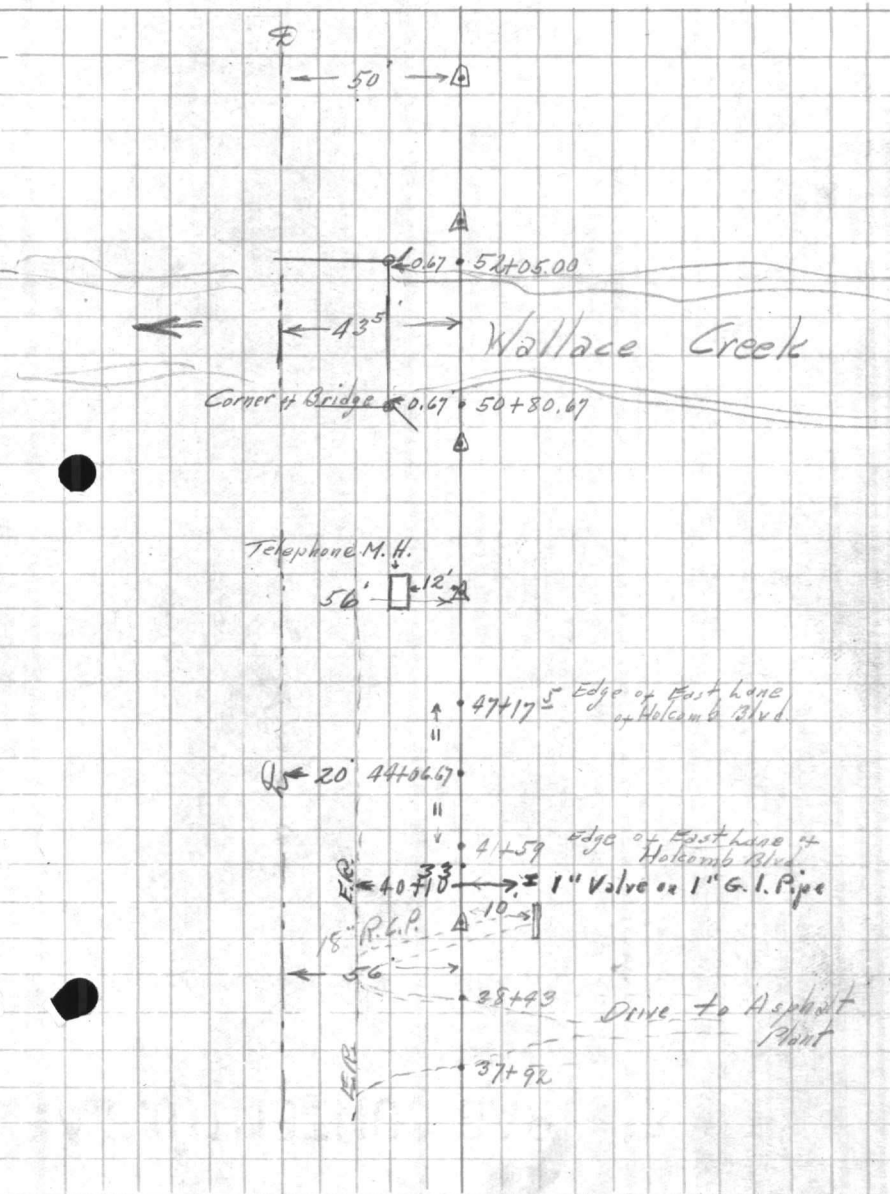 ℄
50'
0.67 52+05.00
43⁵'
Wallace Creek
Corner of Bridge 0.67' 50+80.67
Telephone M.H.
12'
56'
47+17⁵ Edge of East Lane
of Holcomb Blvd.
20' 44+06.67
=
=
41+59 Edge of East Lane of
Holcomb Blvd.
33
E.P. 40+10 1" Valve on 1" G.I. Pipe
10'
18" R.C.P.
56'
38+43
Drive to Asphalt
Plant
E.P.
37+92